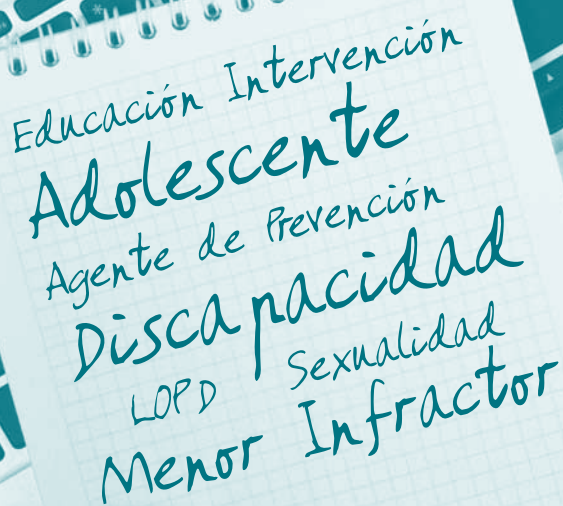 Educación Intervención
Adolescente
Agente de Prevención
Discapacidad
LOPD Sexualidad
Menor Infractor